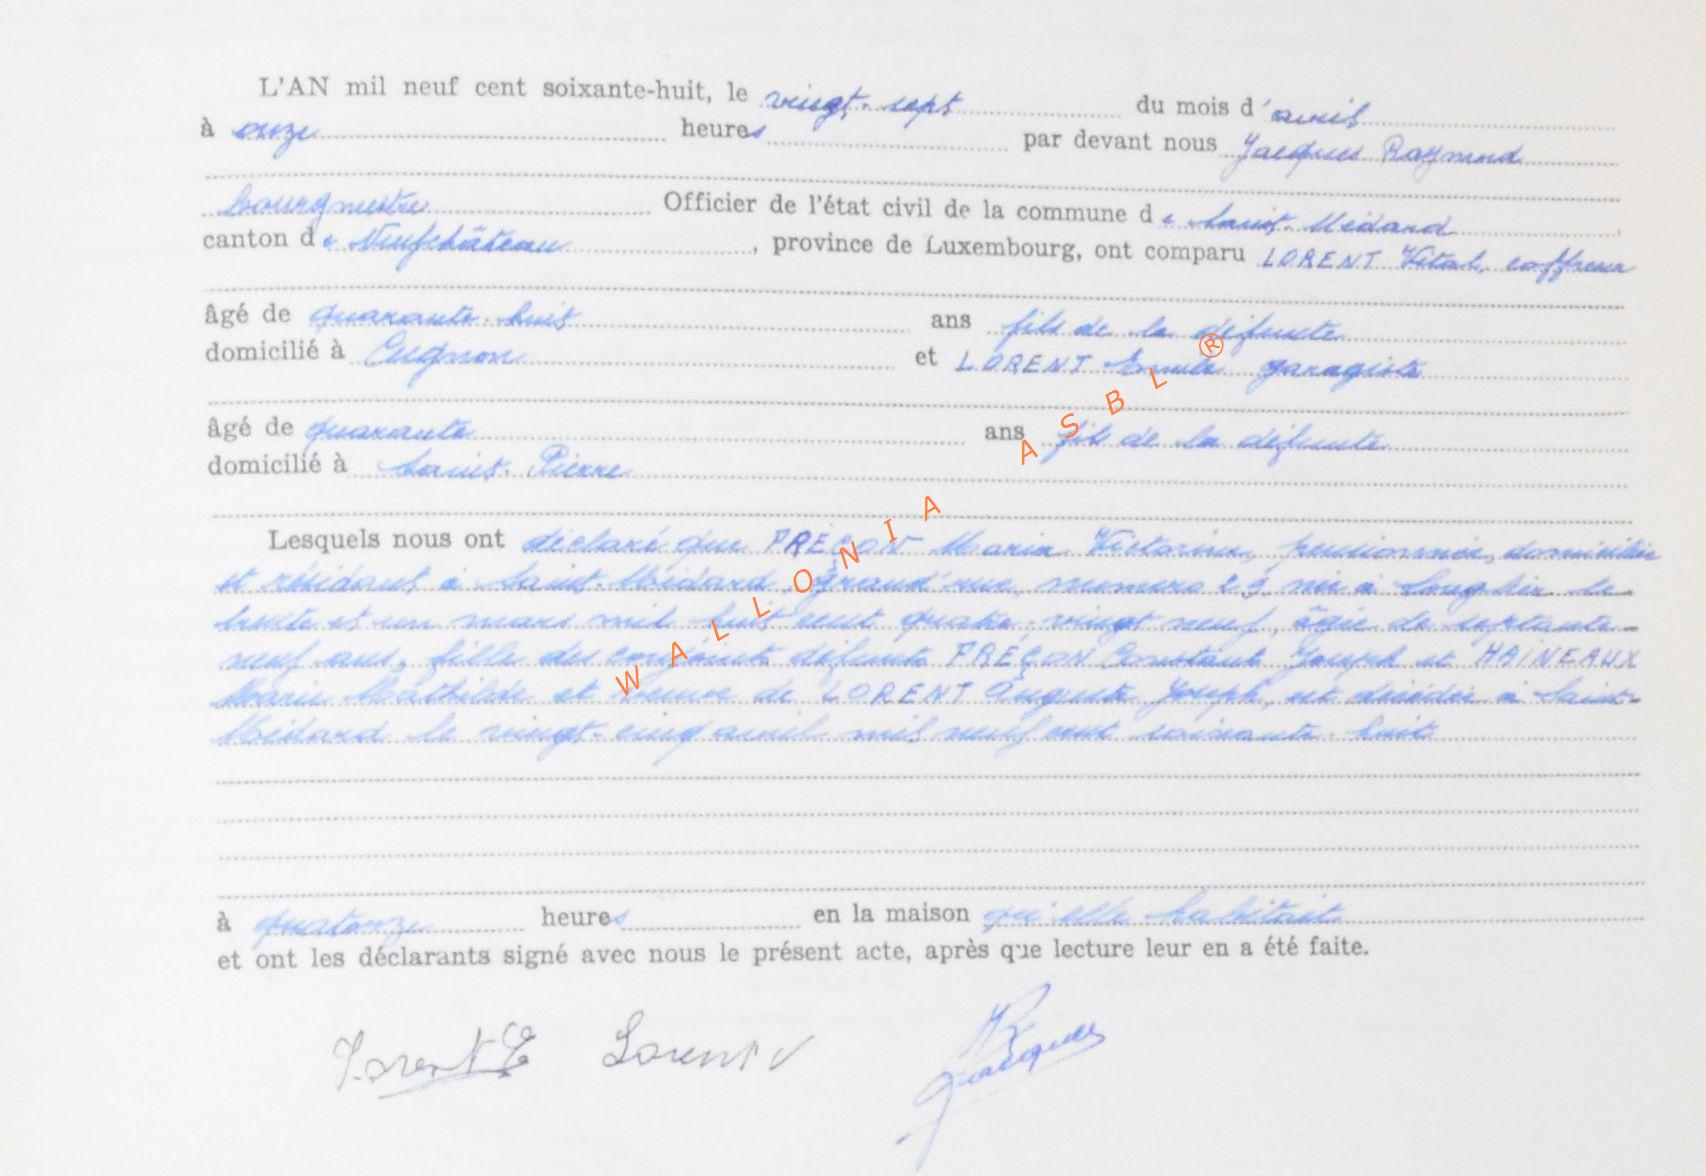 L'AN mil neuf cent soixante-huit, le vingt-sept du mois d'avril
à onze heures par devant nous Jacques Raymond
bourgmestre Officier de l'état civil de la commune de Saint-Médard
canton de Neufchâteau, province de Luxembourg, ont comparu LORENT Vital, coffreur
âgé de quarante-huit ans fils de la défunte
domicilié à Cugnon et LORENT Emile garagiste
âgé de quarante ans fils de la défunte
domicilié à Saint-Pierre
Lesquels nous ont déclaré que PREÇON Maria Victorine, pensionnée, domiciliée
et résidant à Saint-Médard, Grand'rue, numéro 23, née à Longlier le
trente et un mars mil huit cent quatre-vingt neuf, âgée de septante-
neuf ans, fille des conjoints défunts PREÇON Constant Joseph et HAINEAUX
Marie Mathilde et veuve de LORENT Auguste Joseph, est décédée à Saint-
Médard le vingt-cinq avril mil neuf cent soixante-huit
à quatorze heures en la maison qu'elle habitait
et ont les déclarants signé avec nous le présent acte, après que lecture leur en a été faite.
Lorent E Lorent V Jacques
WALLONIA ASBL ®